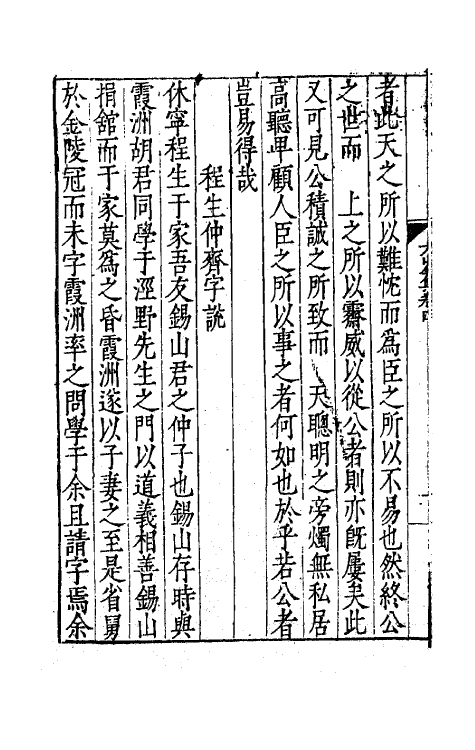 者此天之所以難忱而爲臣之所以不易也然終公
之世而　上之所以霽威以從公者則亦既屢矣此
又可見公積誠之所致而　天聰明之旁燭無私居
高聽卑顧人臣之所以事之者何如也於乎若公者
豈易得哉
程生仲齊字說
休寧程生于家吾友錫山君之仲子也錫山存時與
霞洲胡君同學于涇野先生之門以道義相善錫山
捐舘而于家莫爲之昏霞洲遂以子妻之至是省舅
於金陵冠而未字霞洲率之問學于余且請字焉余